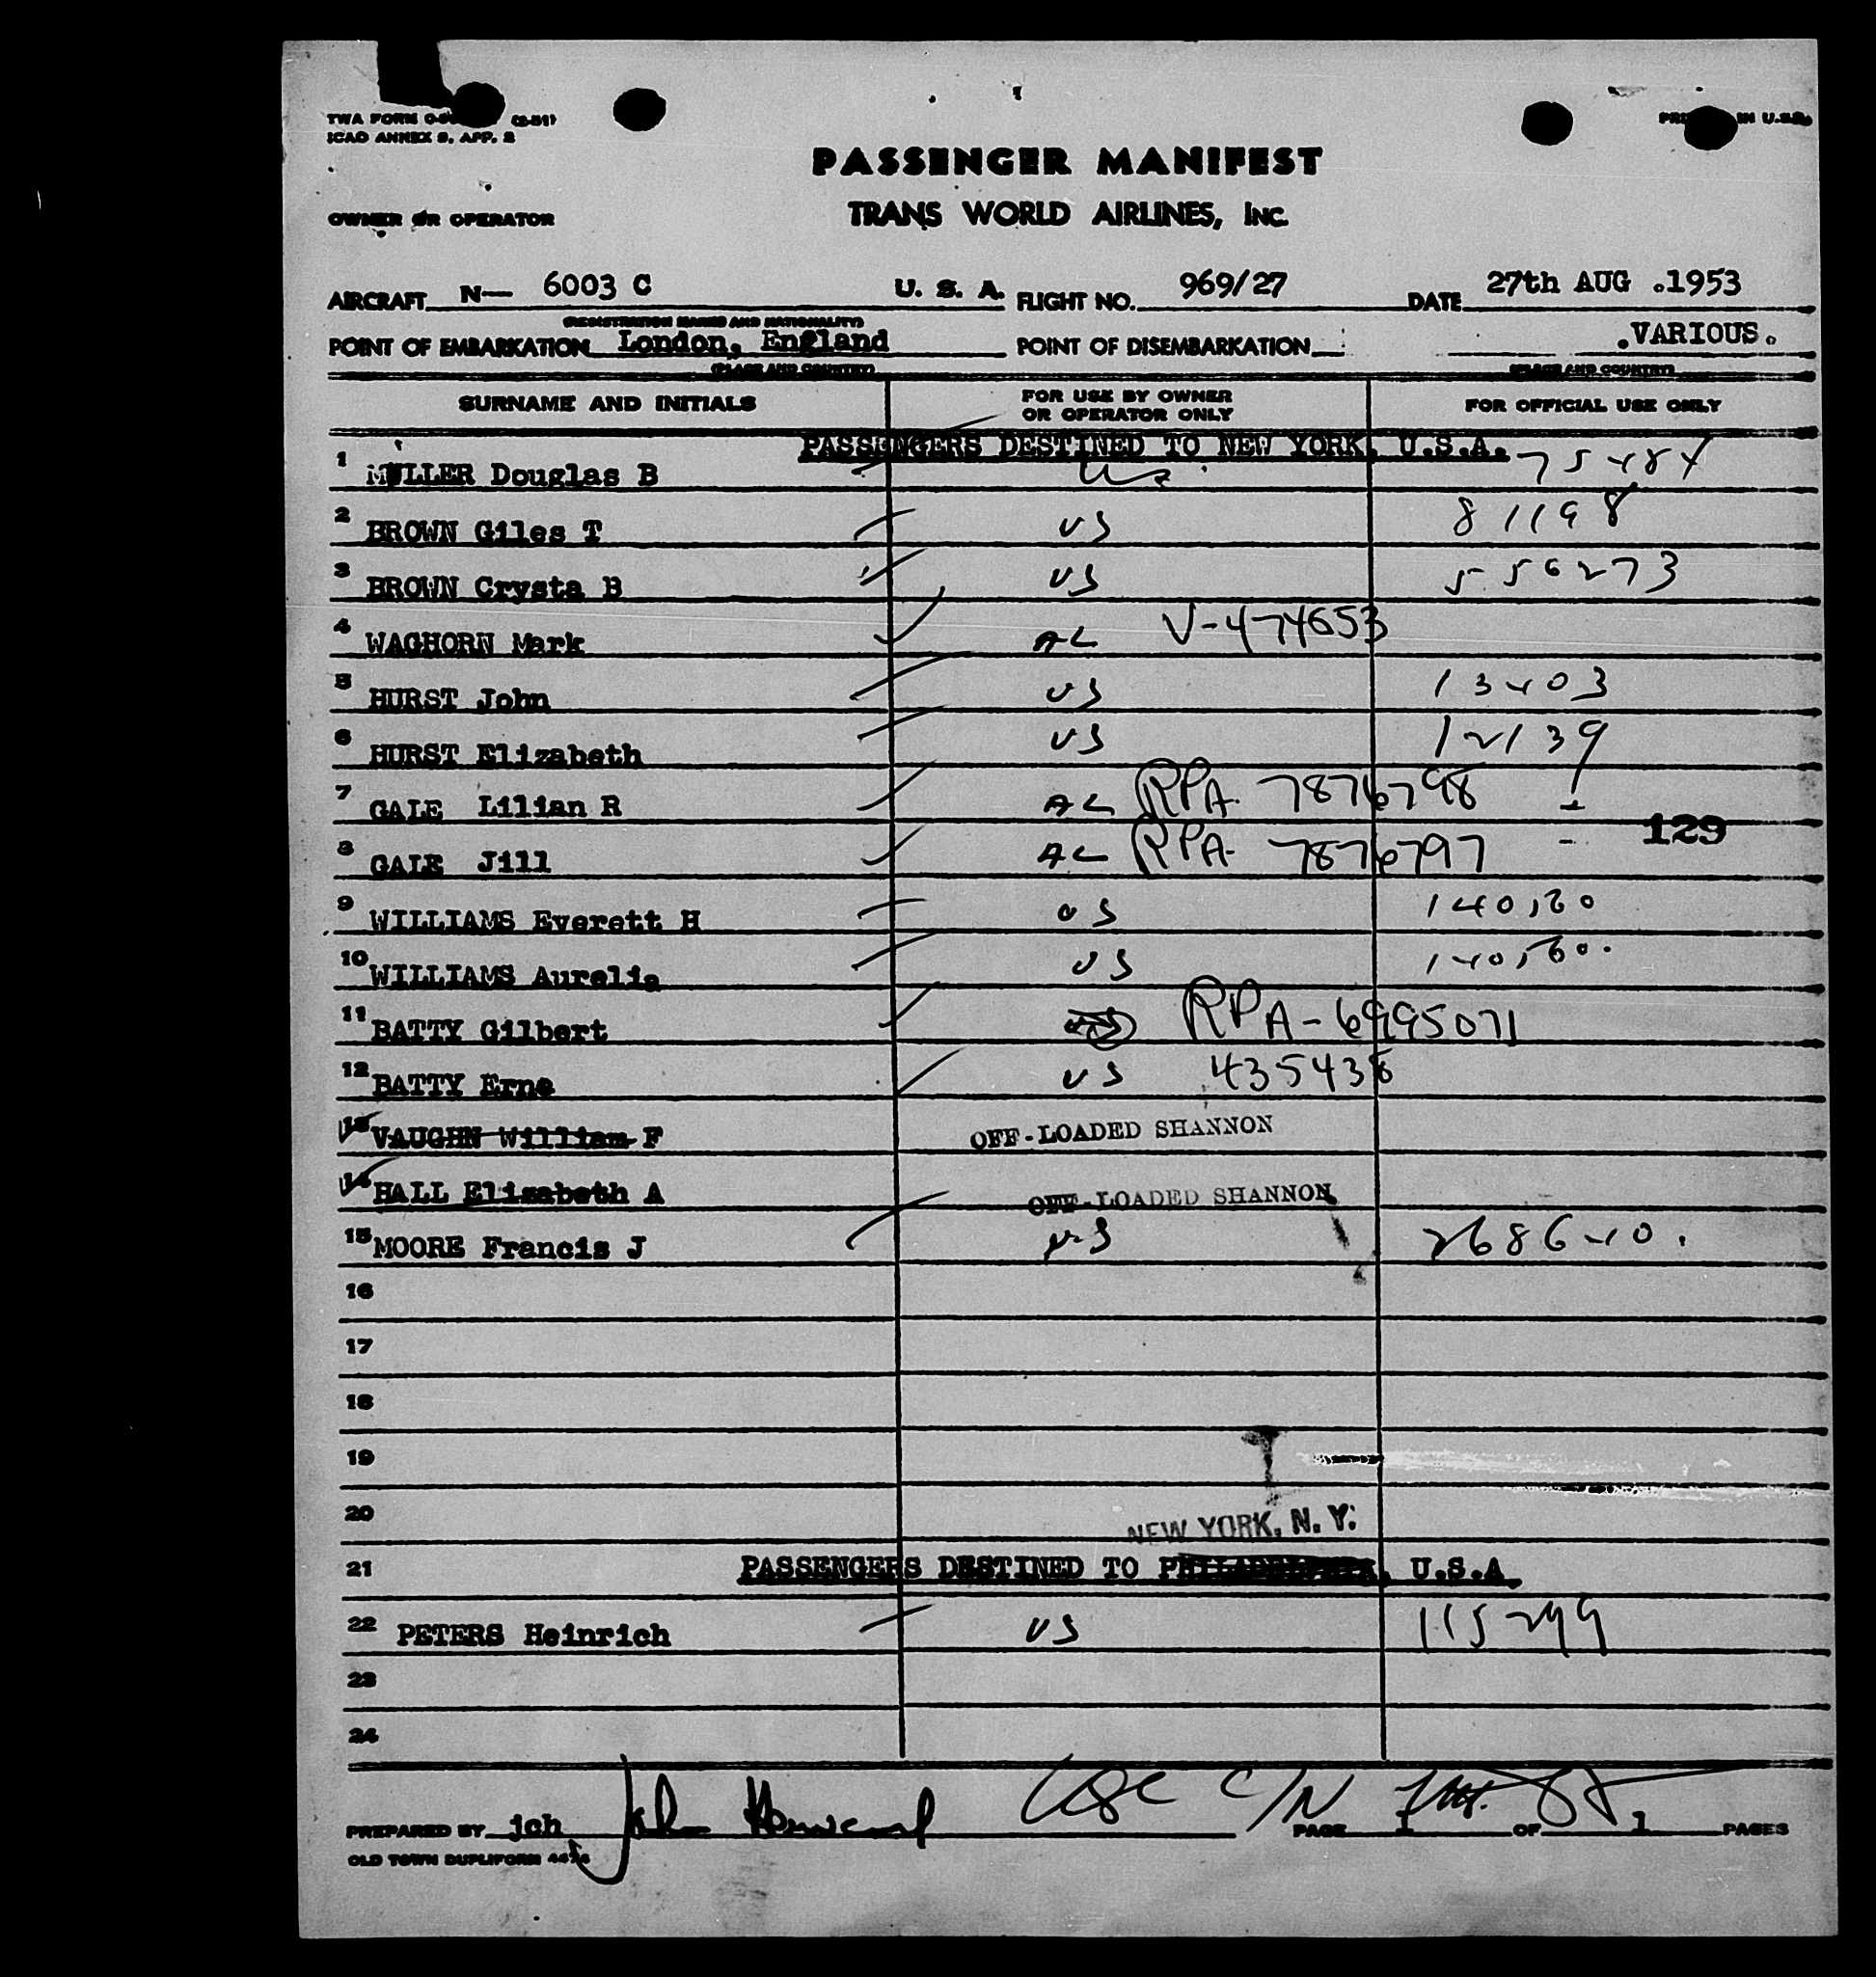 TWA FORM (2-51)
ICAO ANNEX 9, APP. 2
PRINTED IN U.S.A.
PASSENGER MANIFEST
TRANS WORLD AIRLINES, INC.
OWNER OR OPERATOR
AIRCRAFT N— 6003 C U. S. A. FLIGHT NO. 969/27 DATE 27th AUG .1953
(REGISTRATION MARKS AND NATIONALITY)
POINT OF EMBARKATION London, England POINT OF DISEMBARKATION .VARIOUS.
(PLACE AND COUNTRY) (PLACE AND COUNTRY)
SURNAME AND INITIALS FOR USE BY OWNER OR OPERATOR ONLY FOR OFFICIAL USE ONLY
PASSENGERS DESTINED TO NEW YORK, U.S.A.
1 MULLER Douglas B US
2 BROWN Giles T US 81198
3 BROWN Crysta B US 556273
4 WAGHORN Mark AL V-474653
5 HURST John US 13403
6 HURST Elizabeth US 12139
7 GALE Lilian R AL RPA. 7876798
129
8 GALE Jill AL RPA- 7876797
9 WILLIAMS Everett H US
10 WILLIAMS Aurelia US
11 BATTY Gilbert RPA-6995071
12 BATTY Erne US 435438
13 VAUGHN William F OFF-LOADED SHANNON
14 HALL Elizabeth A OFF-LOADED SHANNON
15 MOORE Francis J US 268640.
16
17
18
19
20
NEW YORK, N. Y.
21 PASSENGERS DESTINED TO PHILADELPHIA, U.S.A.
22 PETERS Heinrich US 115299
23
24
PREPARED BY jch John PAGE 1 OF 1 PAGES
OLD TOWN DUPLIFORM